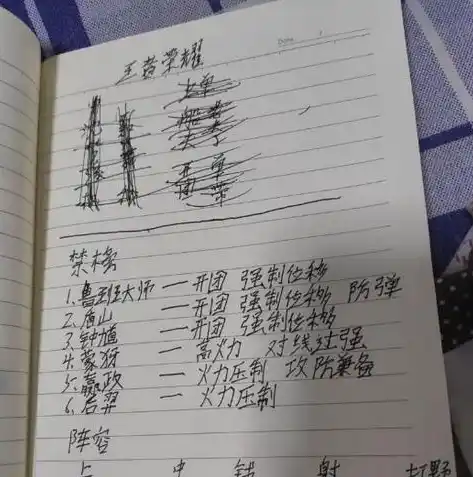 王者荣耀
Date
禁榜
1.鲁班大师 一 开团 强制位移
2.盾山 一 开团 强制位移 防弹
3.钟馗 一 开团 强制位移
4.蒙犽 一 高火力 对线过强
5.嬴政 一 火力压制 攻防兼备
6.后羿 一 火力压制
阵容
上 中 辅 射 打野